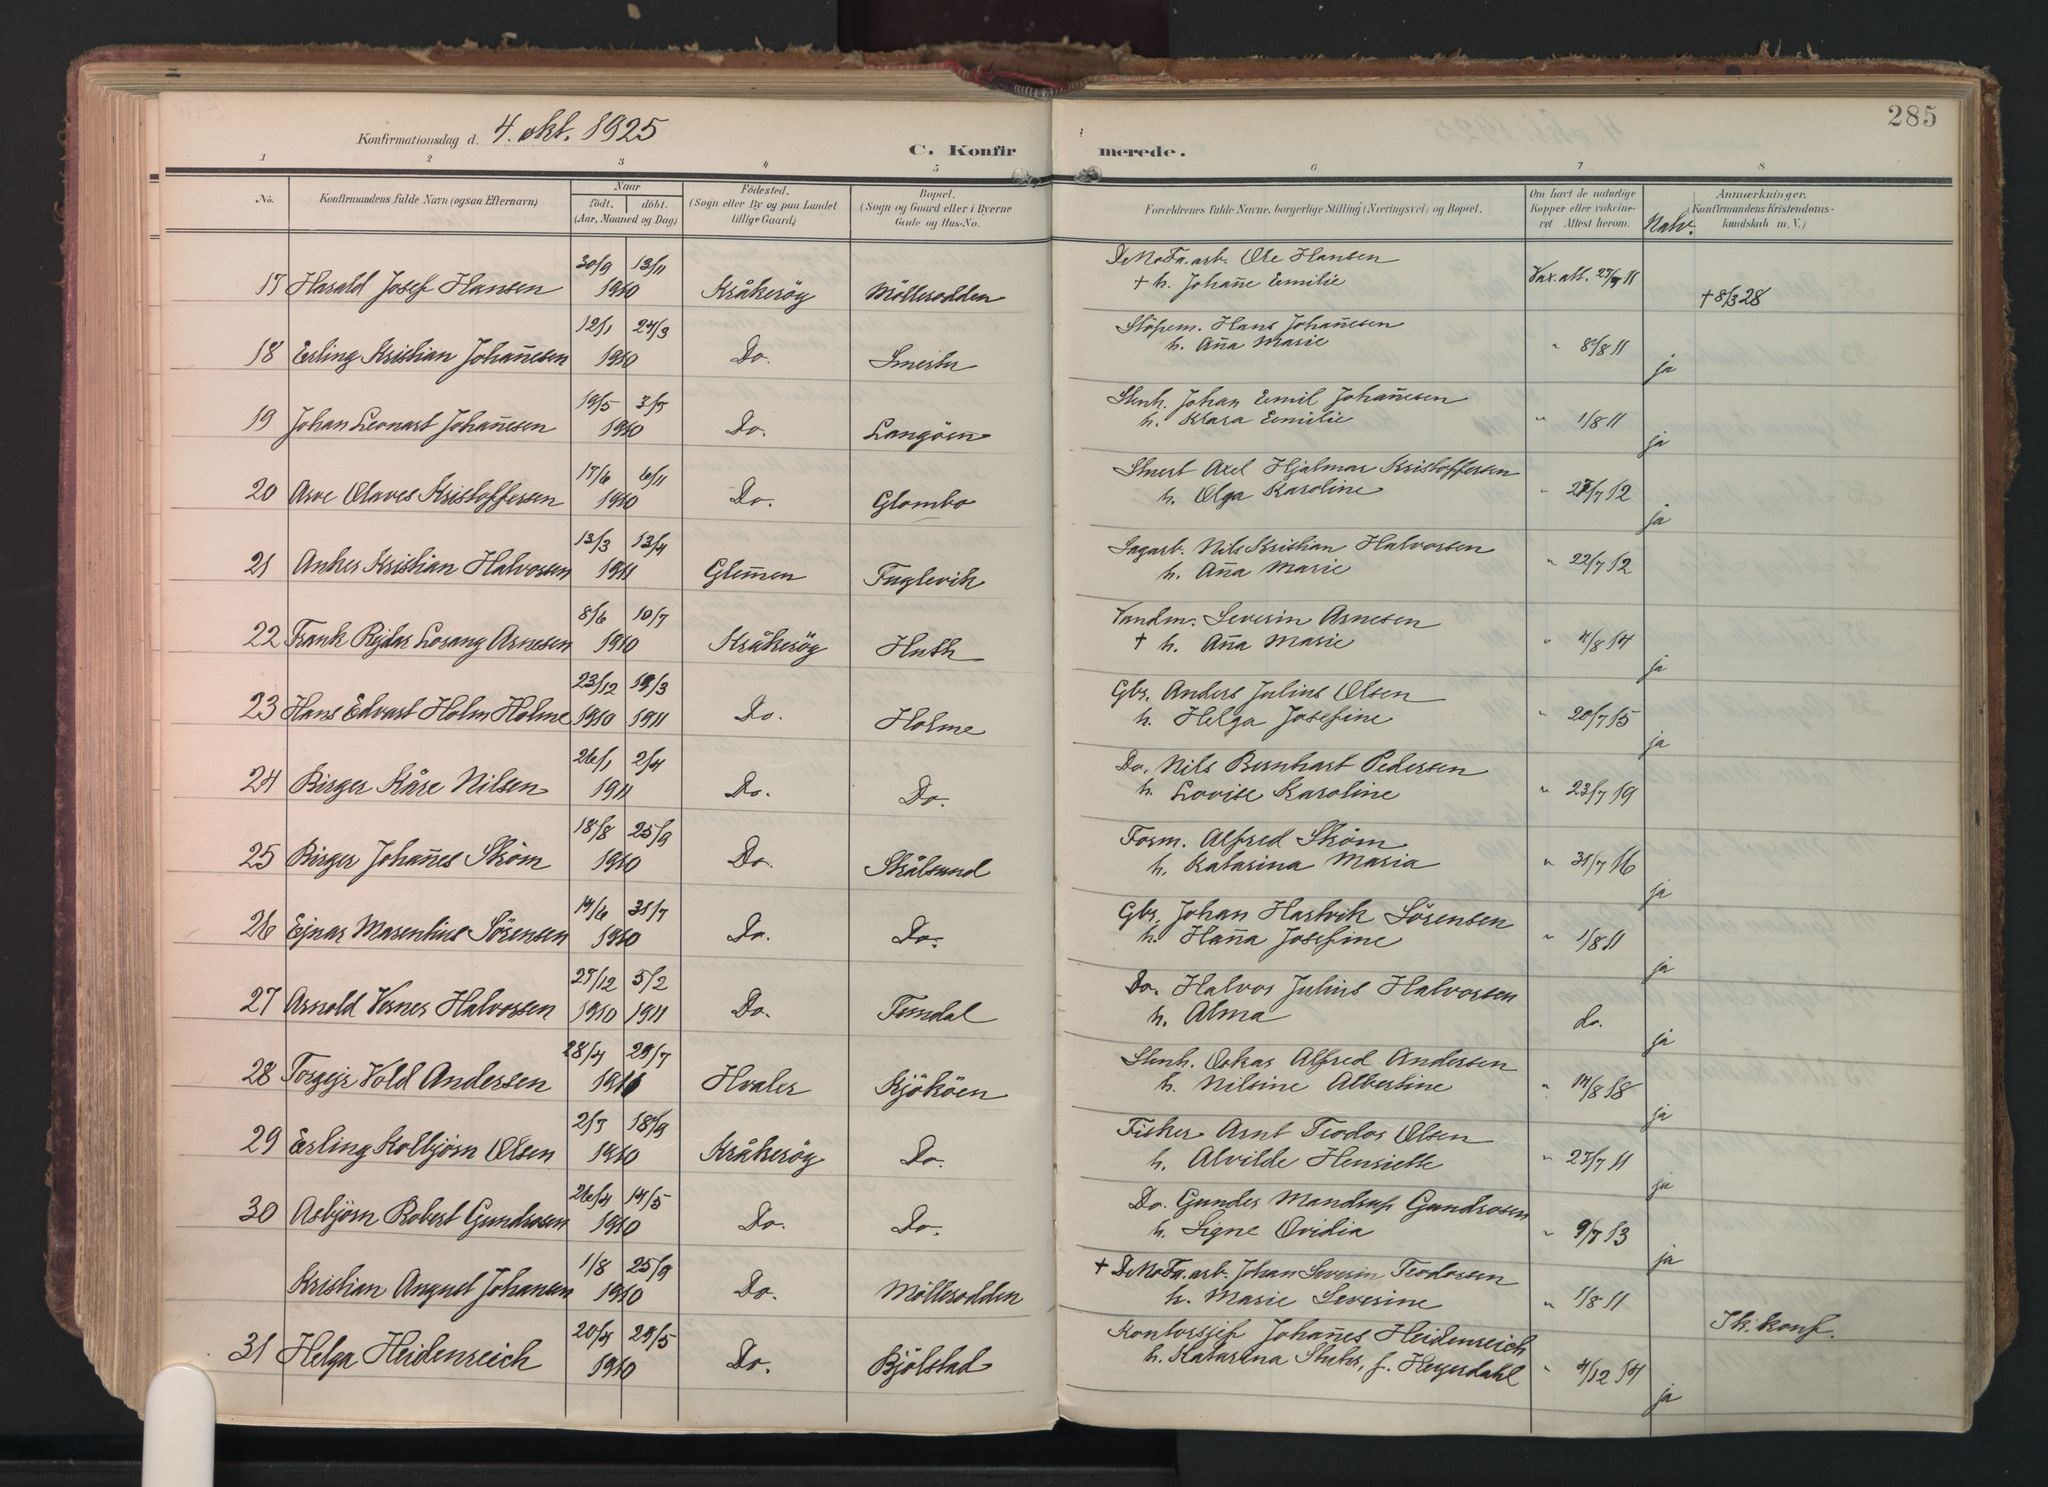 285
Konfirmationsdag d. 4. okt. 1925
C. Konfirmerede.
1 2 3 4 5 6 7 8
No. Konfirmandens fulde Navn (ogsaa Efternavn) Naar født. døbt. (Aar, Maaned og Dag) Fødested. (Sogn eller By og paa Landet tillige Gaard) Bopæl. (Sogn og Gaard eller i Byerne Gade og Hus-No. Forældrenes fulde Navne, borgerlige Stilling (Næringsvei) og Bopæl. Om havt de naturlige Kopper eller vaccineret Attest herom. Natv. Anmærkninger. (Konfirmandens Kristendomskundskab m. V.)
30/9 13/11 DeNoFa.arb. Ole Hansen
17 Harald Josef Hansen 1910 Kråkerög Möllerodden + h. Johañe Emilie Vax.att. 27/9 11 + 8/3 28
12/1 27/3 Stöpem. Hans Johañesen
18 Erling Kristian Johañesen 1910 Do. Smertu h. Aña Marie " 8/8 11 ja
19/5 3/7 Stenh. Johan Emil Johañesen
19 Johan Leonart Johañesen 1910 Do. Langöen h. Klara Emilie " 1/8 11 ja
17/6 6/11 Stuert Axel Hjalmar Kristoffersen
20 Arve Olaves Kristoffersen 1910 Do. Glombo h. Olga Karoline " 27/7 12 ja
13/3 13/4 Sagarb. Nils Kristian Halvorsen
21 Anker Kristian Halvorsen 1911 Glem̄en Fuglevik h. Aña Marie " 22/7 12 ja
8/6 10/7 Vandm. Severin Arnesen
22 Frank Rejdar Lorang Arnesen 1910 Kråkerög Huth + h. Aña Marie " 4/8 14 ja
23/12 19/3 Gbr. Anders Julius Olsen
23 Hans Edvart Holm Holme 1910 1911 Do. Holme h. Helga Josefine " 20/7 15 ja
26/1 2/4 Do. Nils Bernhart Pedersen
24 Birger Kåre Nilsen 1911 Do. Do. h. Lovise Karoline " 23/7 19
18/8 25/9 Form. Alfred Ström
25 Birger Johañes Ström 1910 Do. Stålsund h. Katarina Maria " 31/7 16 ja
14/6 31/7 Gbr. Johan Hartvik Sörensen
26 Ejnar Marentius Sörensen 1910 Do. Do. h. Haña Josefine " 1/8 11 ja
27/12 5/2 Do. Halvor Julius Halvorsen
27 Arnold Verner Halvorsen 1910 1911 Do. Femdal h. Alma do. ja
28/4 29/7 Stenh. Oskar Alfred Andersen
28 Torgejr Vold Andersen 1911 Hvaler Kjököen h. Nilsine Albertine " 14/8 18 ja
2/7 18/9 Fisker Arnt Teodor Olsen
29 Erling Kolbjörn Olsen 1910 Kråkerög Do. h. Alvilde Henriette " 27/7 11 ja
26/4 14/5 Do. Gunder Mandrup Gundrosen
30 Asbjörn Robert Gundrosen 1910 Do. Do. h. Signe Ovidia " 9/7 13 ja
1/8 25/9 + DeNoFa.arb. Johan Severin Teodorsen
Kristian August Johansen 1910 Do. Möllerodden h. Marie Severine " 1/8 11 Ik. konf.
20/4 29/5 Kontorsjef Johañes Heidenreich
31 Helga Heidenreich 1910 Do. Bjölstad h. Katarina Stuhr, f. Heyerdahl " 4/12 14 ja